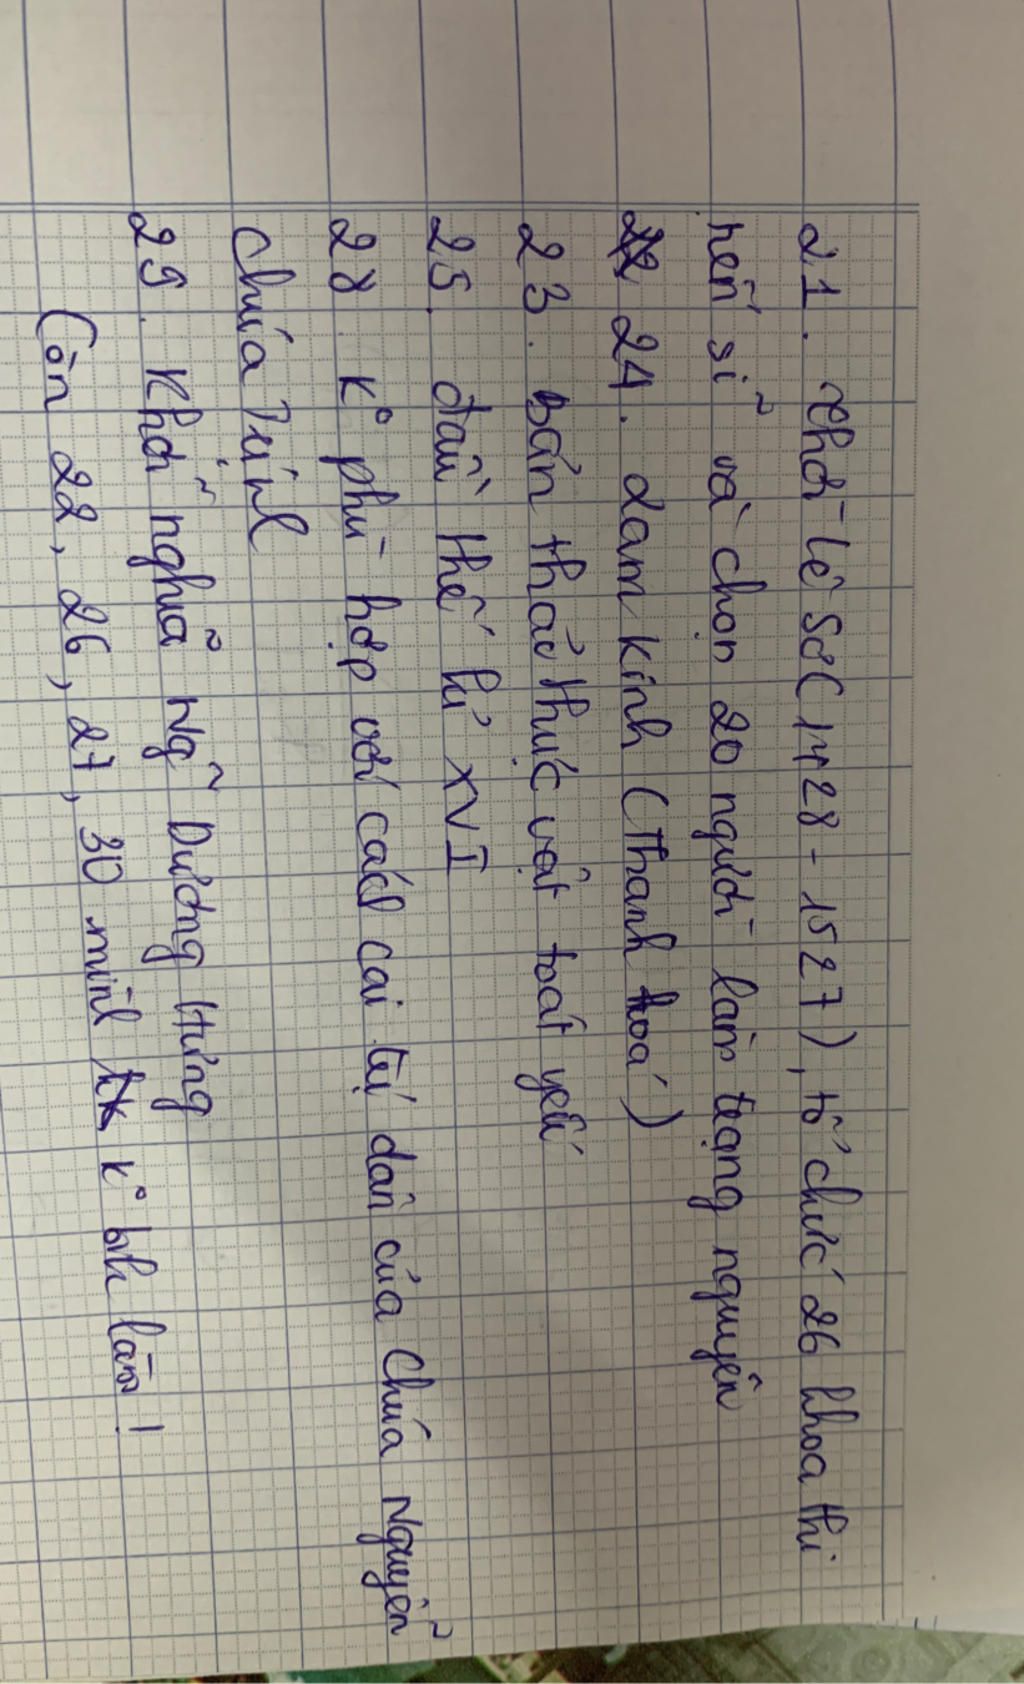 21. Thời Lê Sơ (1428 - 1527), tổ chức 26 khoa thi
tiến sĩ và chọn 20 người làm trạng nguyên
24. Lam Kinh (Thanh hoá)
23. Bản thảo thực vật toát yếu
25. đầu thế kỉ XVI
28. K° phù hợp với cách cai trị dân của Chúa Nguyễn
Chúa Trịnh
29. Khởi nghĩa Ngô Dương Hưng
Còn 22, 26, 27, 30 mình k° bh làm!